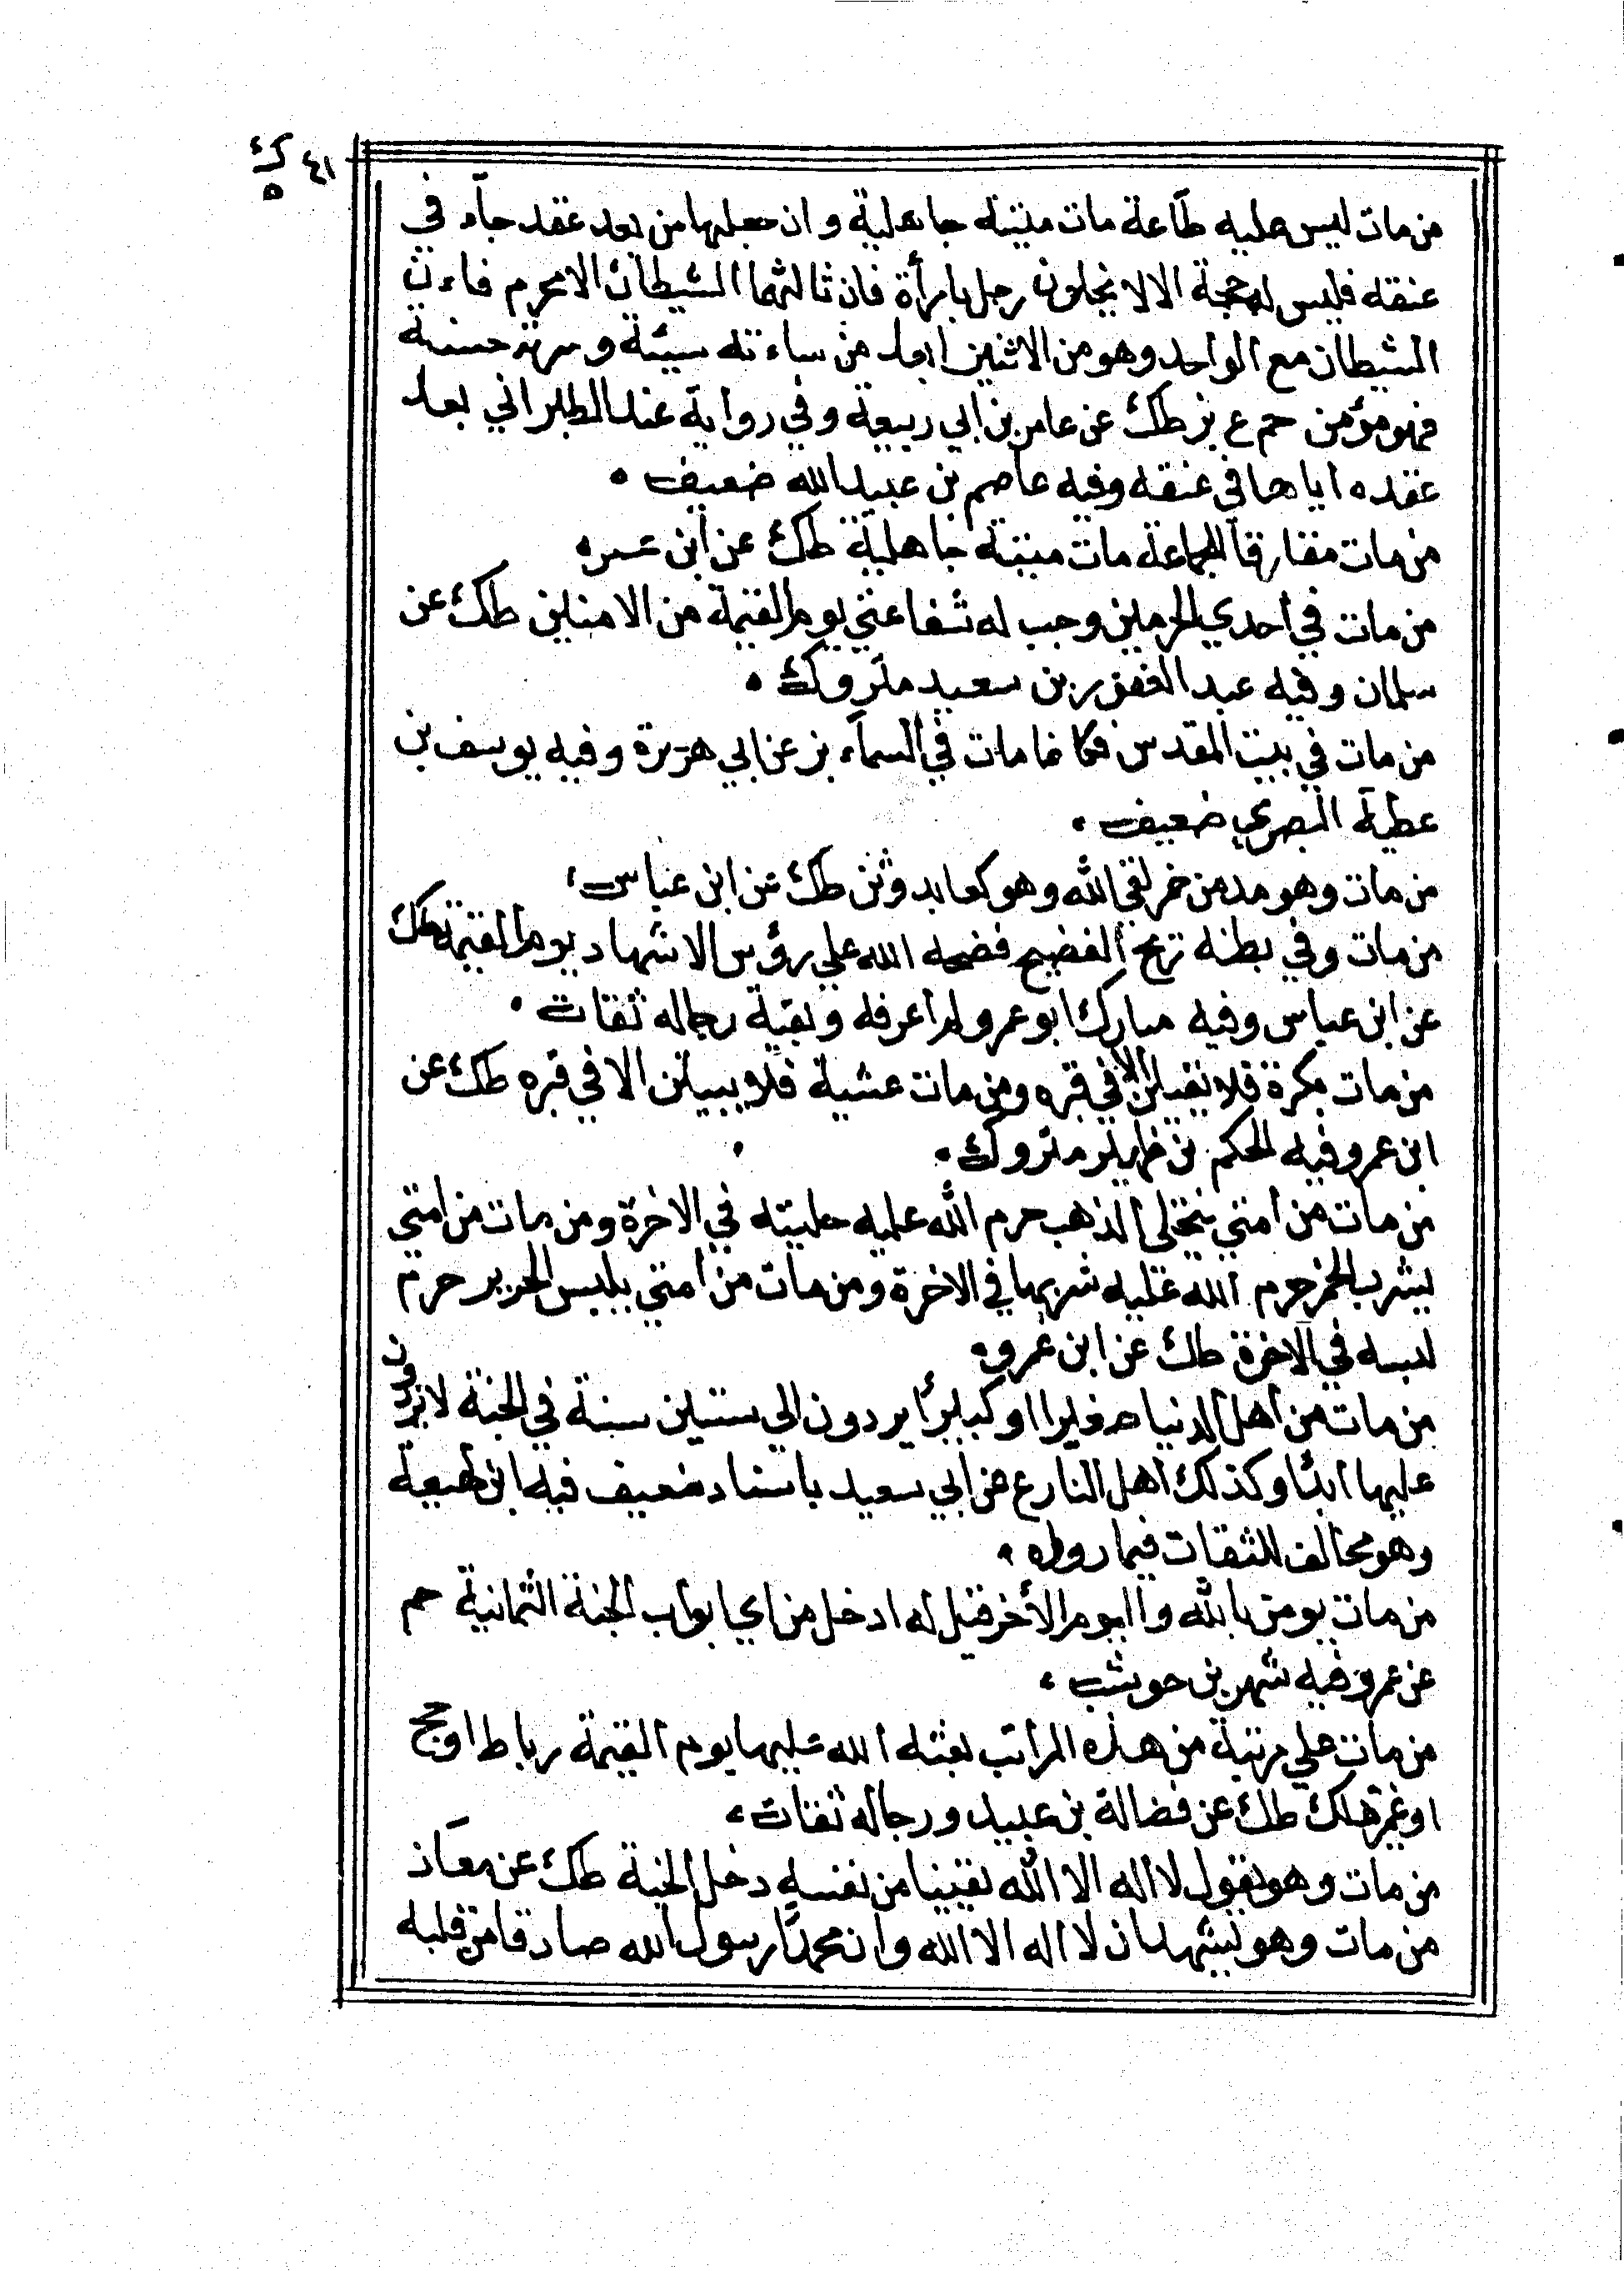 ٤١ ك
٥
من مات ليس عليه طاعة مات ميتة جاهلية وان جعلها من بعد عقد جآء في
عنقه فليس له حجة الا لا يخلون رجل بامرأة فان ثالثهما الشيطان الا محرم فاءن
الشيطان مع الواحد وهو من الاثنين ابعد من ساءته سيئة وسرته حسنة
فهو مؤمن حم ع بز طك عن عامر بن ابي ربيعة وفي رواية عند الطبراني بعد
عقده اياها في عنقه وفيه عاصم بن عبيد الله ضعيف ه
من مات مفارقا للجماعة مات ميتة جاهلية طك عن ابن عمر ه
من مات في أحدي الحرمين وجب له شفاعتي يوم القيمة من الامنين طك عن
سلمان وفيه عبد الغفور بن سعيد متروك ه
من مات في بيت المقدس فكانما مات في السمآء بز عن ابي هريرة وفيه يوسف بن
عطية البصري ضعيف ه
من مات وهو مدمن خمر لقي الله وهو كعابد وثن طك عن ابن عباس ه
من مات وفي بطنه ريح الفضيح فضحه الله علي رؤس الاشهاد يوم القيمة طك
عن ابن عباس وفيه مبارك ابو عمرو لم اعرفه وبقية رجاله ثقات ه
من مات بكرة فلا يقيلن الا في قبره ومن مات عشية فلا يبيتن الا في قبره طك عن
ابن عمر وفيه الحكم بن ظهير متروك ه
من مات من امتي يتحلى الذهب حرم الله عليه حليته في الاخرة ومن مات من امتي
يشرب الخمر حرم الله عليه شربها في الاخرة ومن مات من امتي يلبس الحرير حرم
لبسه في الآخرة طك عن ابن عمرو ه
من مات من اهل الدنيا صغيرا او كبيرأ يردون الي ستين سنة في الجنة لا يزدون
عليها ابدًا وكذلك اهل النار ع عن ابي سعيد باسناد ضعيف فيه ابن لهيعة
وهو مخالف للثقات فيما رواه ه
من مات يومن بالله واليوم الأخر قيل له ادخل من اي ابواب الجنة الثمانية حم
عن عمر وفيه شهر بن حوشب ه
من مات علي مرتبة من هذه المراتب بعثه الله عليها يوم القيمة رباط او حج
او غير ذلك طك عن فضالة بن عبيد ورجاله ثقات ه
من مات وهو يقول لا اله الا الله يقينا من نفسه دخل الجنة طك عن معآذ
من مات وهو يشهد ان لا اله الا الله وان محمدًا رسول الله صادقا من قلبه